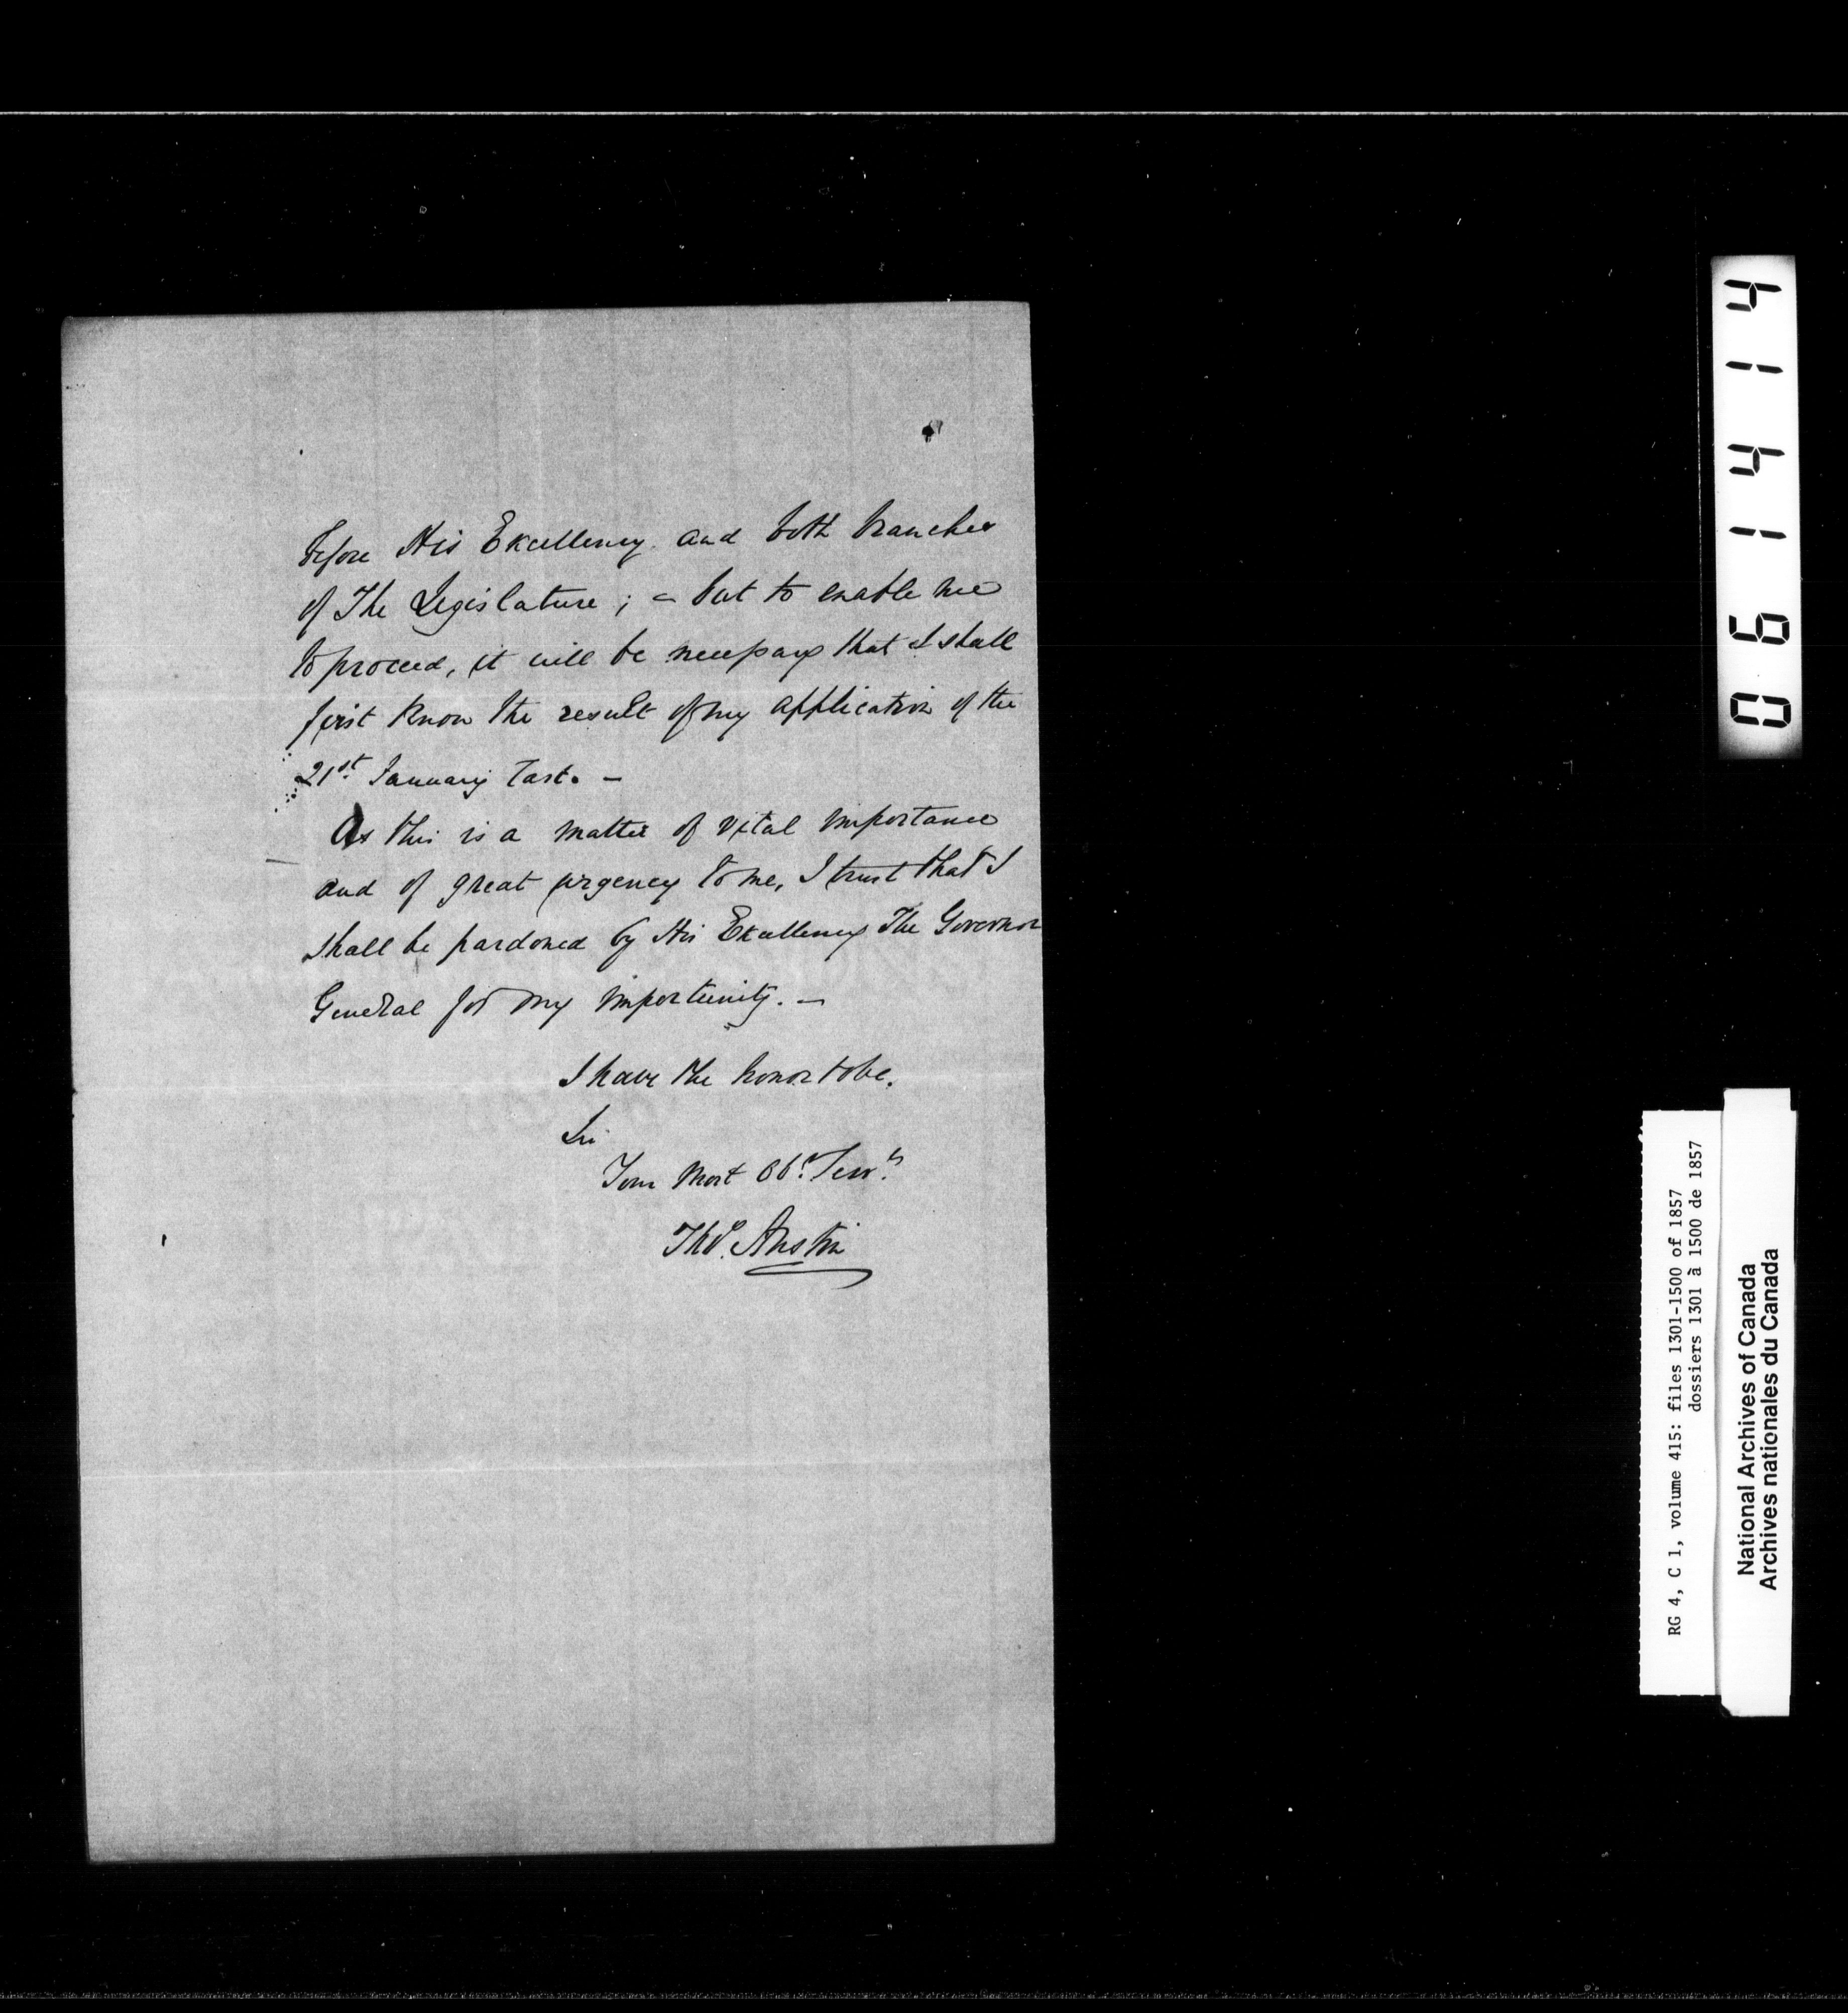 before His Excellency and both branches
of The Legislature ; – but to enable me
to proceed, it will be necessary that I shall
first know the result of my application of the
21st January last. –
As this is a matter of vital importance
and of great urgency to me, I trust that I
shall be pardoned by His Excellency The Governor
General for my importunity. –
I have the honor to be.
Sir
Your most Obt. Servt.
Thos. Austin
061414
RG 4, C 1, volume 415: files 1301-1500 of 1857
dossiers 1301 à 1500 de 1857
National Archives of Canada
Archives nationales du Canada